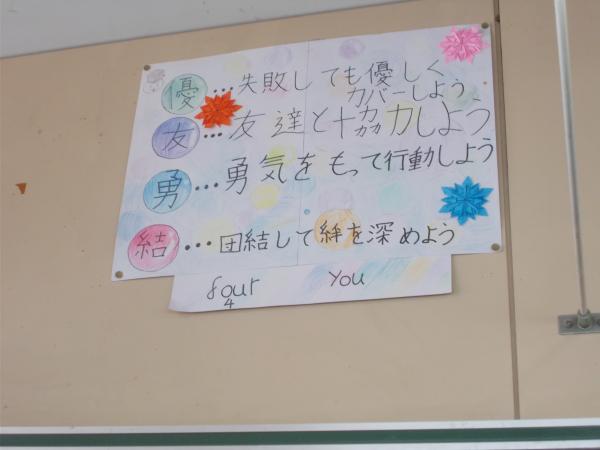 優…失敗しても優しく
カバーしよう
友…友達と協力しよう
勇…勇気をもって行動しよう
結…団結して絆を深めよう
four you
4